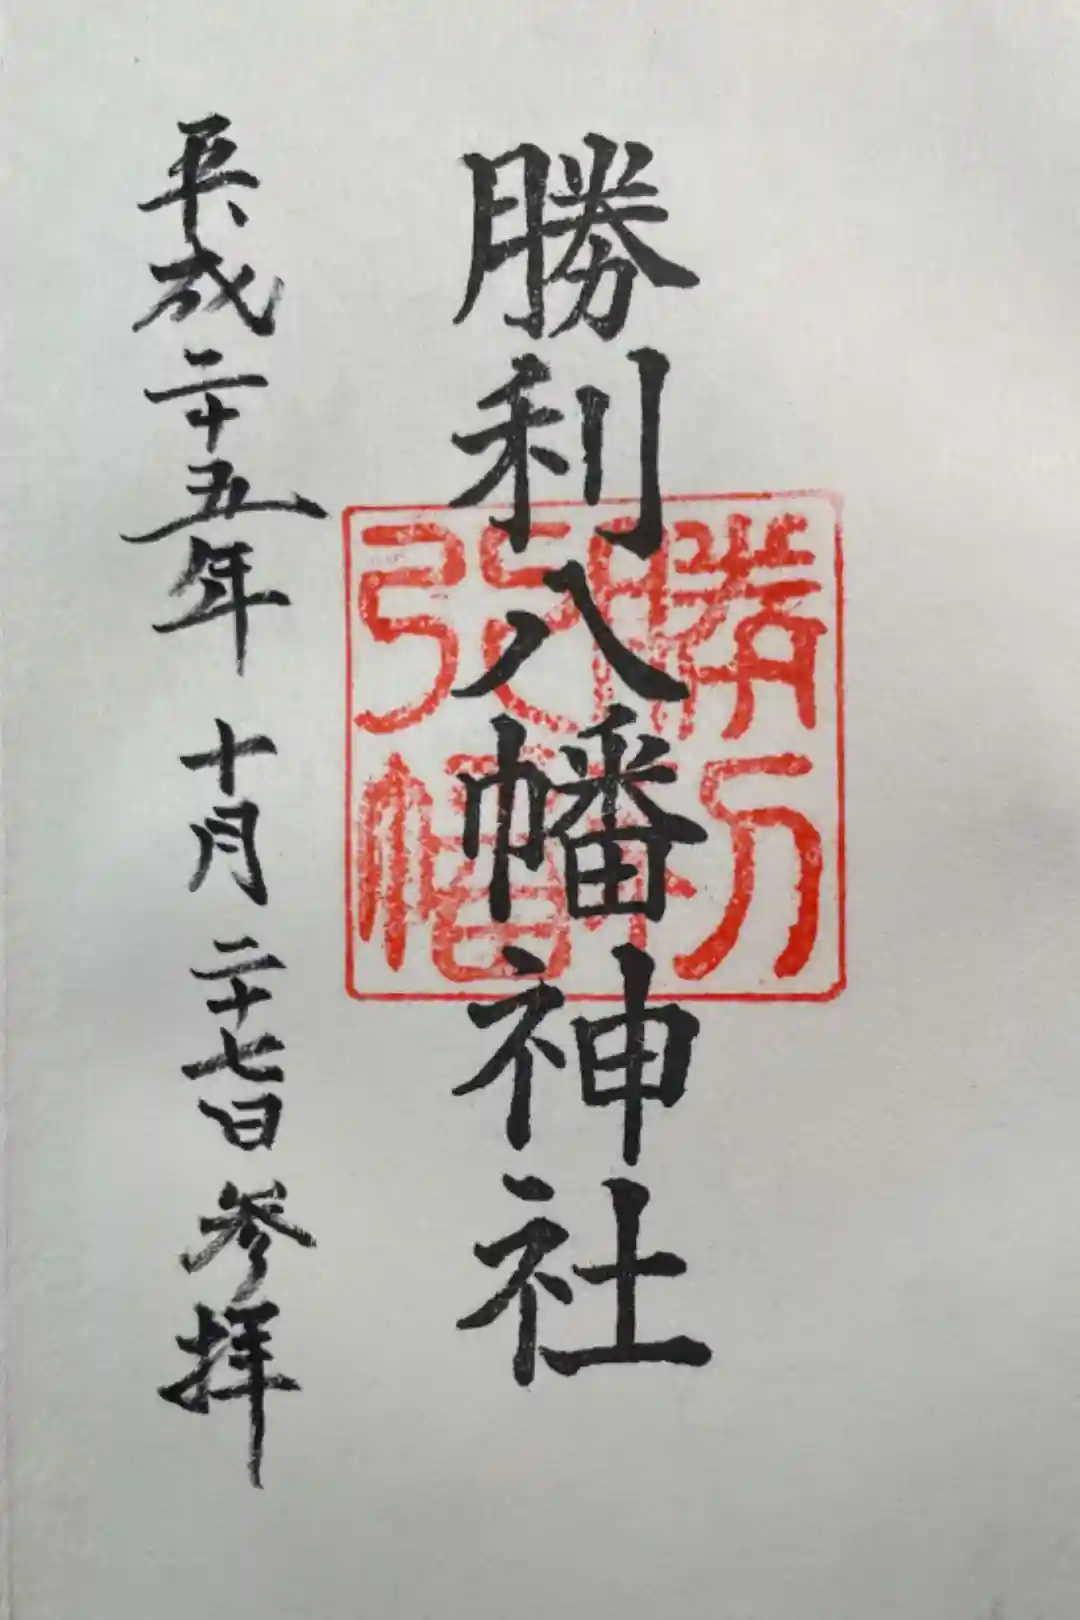 勝利八幡神社
勝利
八幡
平成二十五年 十月 二十七日 参拝